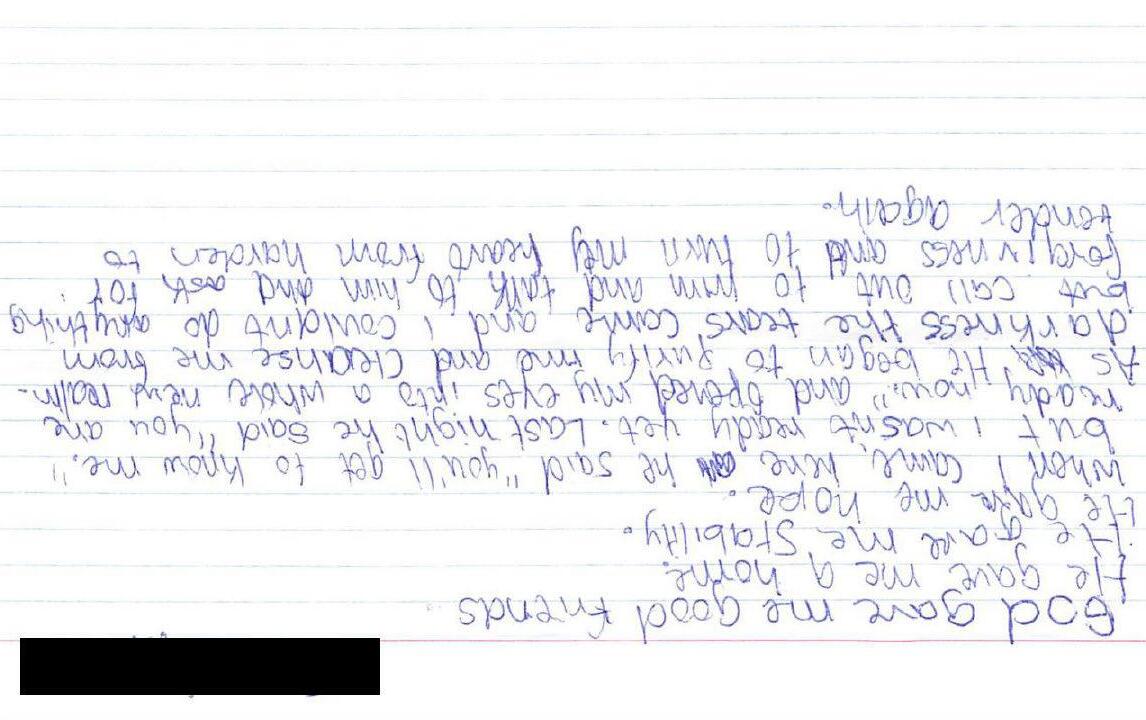 God gave me good friends
He gave me a home.
He gave me stability.
He gave me hope.
when I came here he said "you'll get to know me."
but i wasn't ready yet. Last night he said "you are
ready now." and opened my eyes into a whole new realm.
As He began to purify me and cleanse me from
darkness the tears came and i couldnt do anything
but call out to him and talk to him and ask for
forgivness and to turn my heart from harden to
tender again.